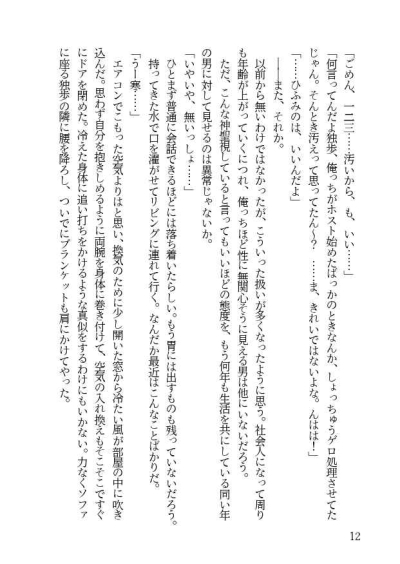 「ごめん、一二三……汚いから、も、いい……」
「何言ってんだよ独歩。俺っちがホスト始めたばっかのときなんか、しょっちゅうゲロ処理させてた
じゃん。そんとき汚えって思ってたん〜？　……ま、きれいではないよな。んはは！」
「……ひふみのは、いいんだよ」
――また、それか。
以前から無いわけではなかったが、こういった扱いが多くなったように思う。社会人になって周り
も年齢が上がっていくにつれ、俺っちほど性に無関心そうに見える男は他にいないだろう。
ただ、こんな神聖視していると言ってもいいほどの態度を、もう何年も生活を共にしている同い年
の男に対して見せるのは異常じゃないか。
「いやいや、無いっしょ……」
ひとまず普通に会話できるほどには落ち着いたらしい。もう胃には出すものも残っていないだろう。
持ってきた水で口を濯がせてリビングに連れて行く。なんだか最近はこんなことばかりだ。
「うー寒……」
エアコンでこもった空気よりはと思い、換気のために少し開いた窓から冷たい風が部屋の中に吹き
込んだ。思わず自分を抱きしめるように両腕を身体に巻き付けて、空気の入れ換えもそこそこですぐ
にドアを閉めた。冷えた身体に追い打ちをかけるような真似をするわけにもいかない。力なくソファ
に座る独歩の隣に腰を降ろし、ついでにブランケットも肩にかけてやった。
12